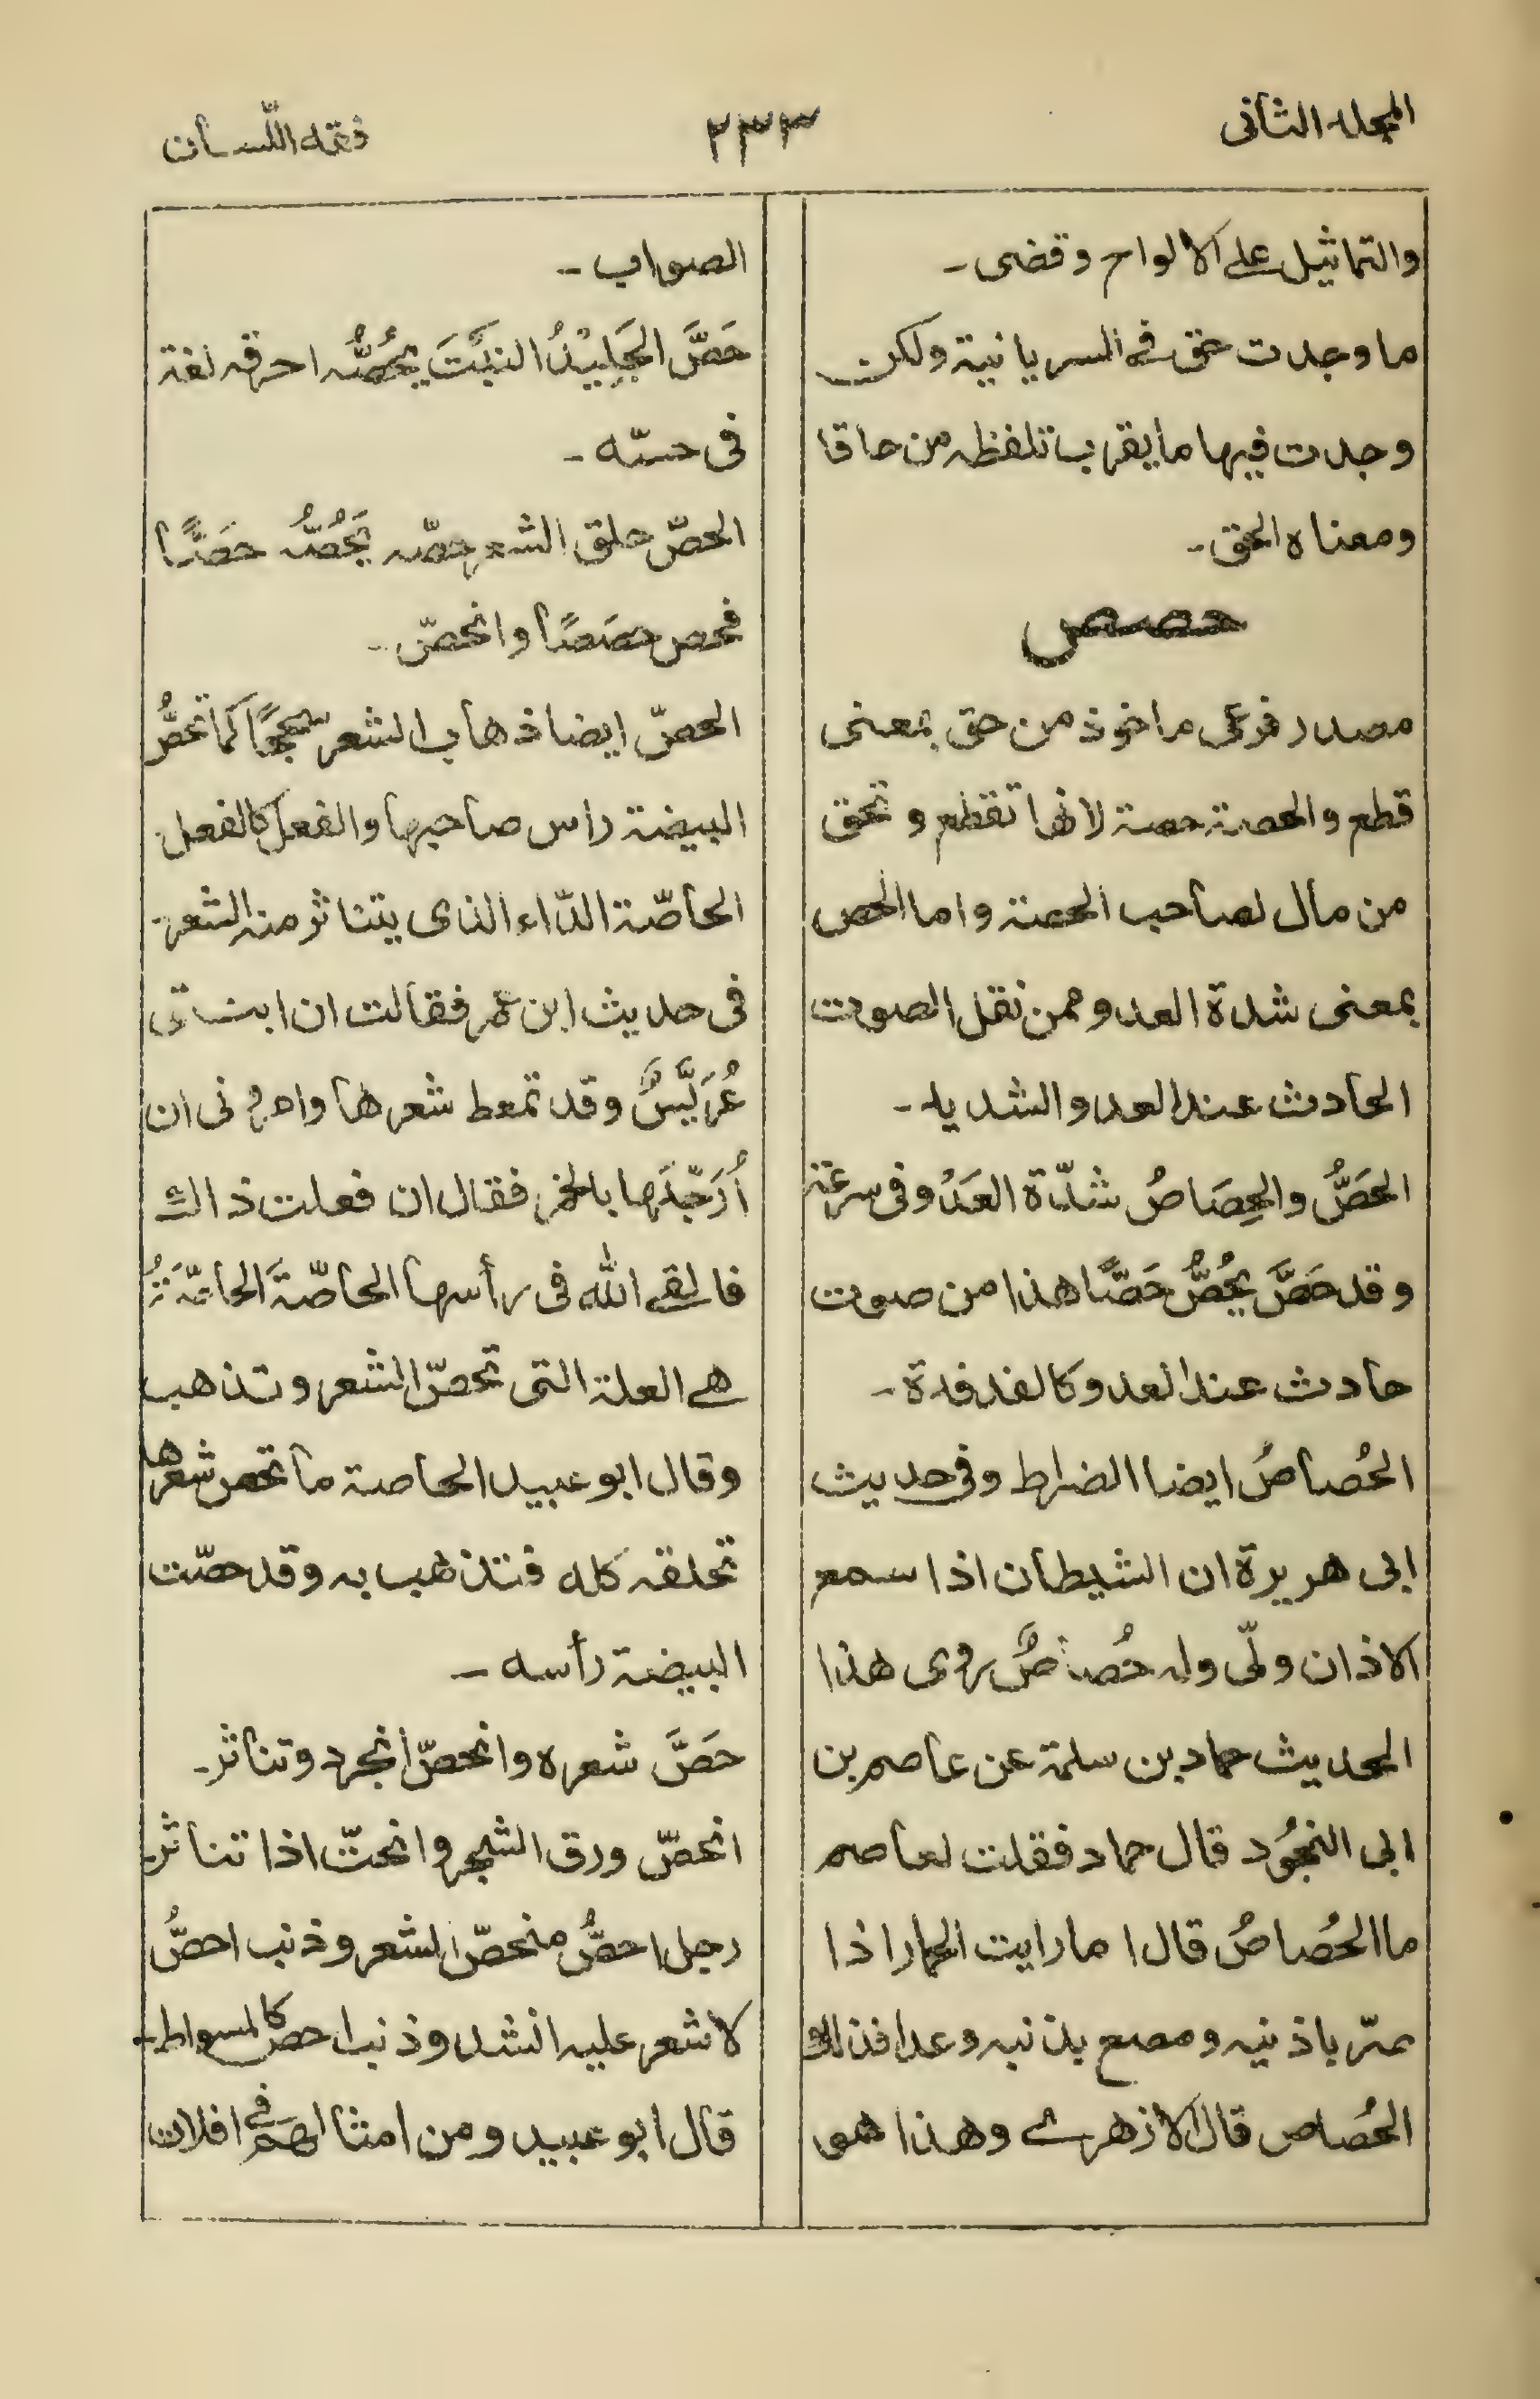 المجلد الثانى
٢٣٣
فقه اللّسان
والتماثيل على الالواح وقضى۔
ما وجدت حق فى السريانية ولكن
وجدت فيها ما يقرب تلفظه من حاقا
ومعناه الحق۔
حصص
مصدر فرعى ماخوذ من حق بمعنى
قطع والحصة حصة لانها تقطع وتحق
من مال لصاحب الحصة واما الحص
بمعنى شدة العدو فمن نقل الصوت
الحادث عند العدو الشديد۔
الحَصُّ والحِصَاصُ شدّة العَدُو فى سرعته
وقد حَصَّ يَحُصُّ حَصًّا هذا من صوت
حادث عند العدو كالفدفدة۔
الحُصاصُ ايضا الضراط وفى حديث
ابى هريرة ان الشيطان اذا سمع
الاذان ولّى وله حُصاصٌ روى هذا
الحديث حماد بن سلمة عن عاصم بن
ابى النجُود قال حماد فقلت لعاصم
ما الحُصاصُ قال اما رايت الحمار اذا
صرّ باذنيه ومصع بذنبه وعدا فذالك
الحُصاص قال الازهرى وهذا هو
الصواب۔
حَصَّ الجَلِيْدُ النبَتَ يَحُصُّه احرقه لغة
فى حسّه۔
الحصّ حلق الشعر حصّه يَحُصُّه حَصًّا
فحص حصَصًا وانحصّ۔
الحصّ ايضا ذهاب الشعر سحجًا كما تحصُّ
البيضة راس صاحبها والفعل كالفعل
الحاصّة الدّاء الذى يتناثر منه الشعر۔
فى حديث ابن عمر فقالت ان ابنتى
عُرَيِّسٌ وقد تمعط شعرها وامرونى ان
اُرَجِّلَها بالخمر فقال ان فعلت ذالك
فالقى الله فى رأسها الحاصّةَ الحاصّةُ
هى العلة التى تحصّ الشعر وتذهب
وقال ابو عبيد الحاصة ما تحص شعرها
تحلقه كله فتذهب به وقد حصّت
البيضة رأسه۔
حَصَّ شعره وانحصّ انجرد وتناثر۔
انحصّ ورق الشجر وانحتّ اذا تناثر۔
رجل احصُّ منحصّ الشعر وذنب احصُّ
لا شعر عليه انشد وذنب احص كالمسواط۔
قال ابو عبيد ومن امثالهم فى افلات